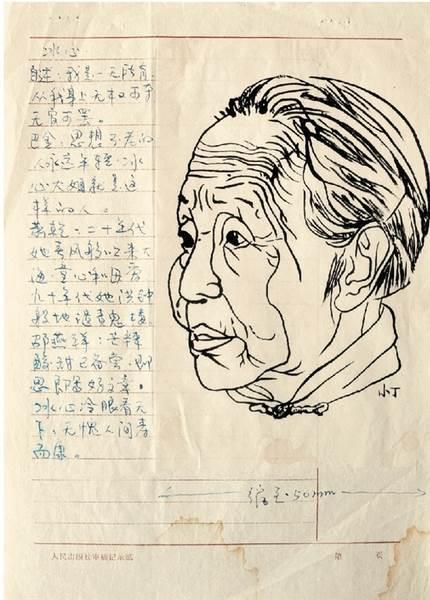 冰心
自述：我是一无所有，
从我身上无本可夺
无官可罢。
巴金：思想不老的
人永远年轻，冰
心大姐就是这
样的人。
萧乾：二十年代
她春风般以爱大
海、童心和母爱
九十年代她洪钟
般地谴责鬼
邵燕祥：苦辣
酸甜已备尝，即
思即降好文章。
冰心冷眼看天
下，无愧人间寿
而康。
小丁
缩至·50mm
人民出版社审稿记录纸
第 页